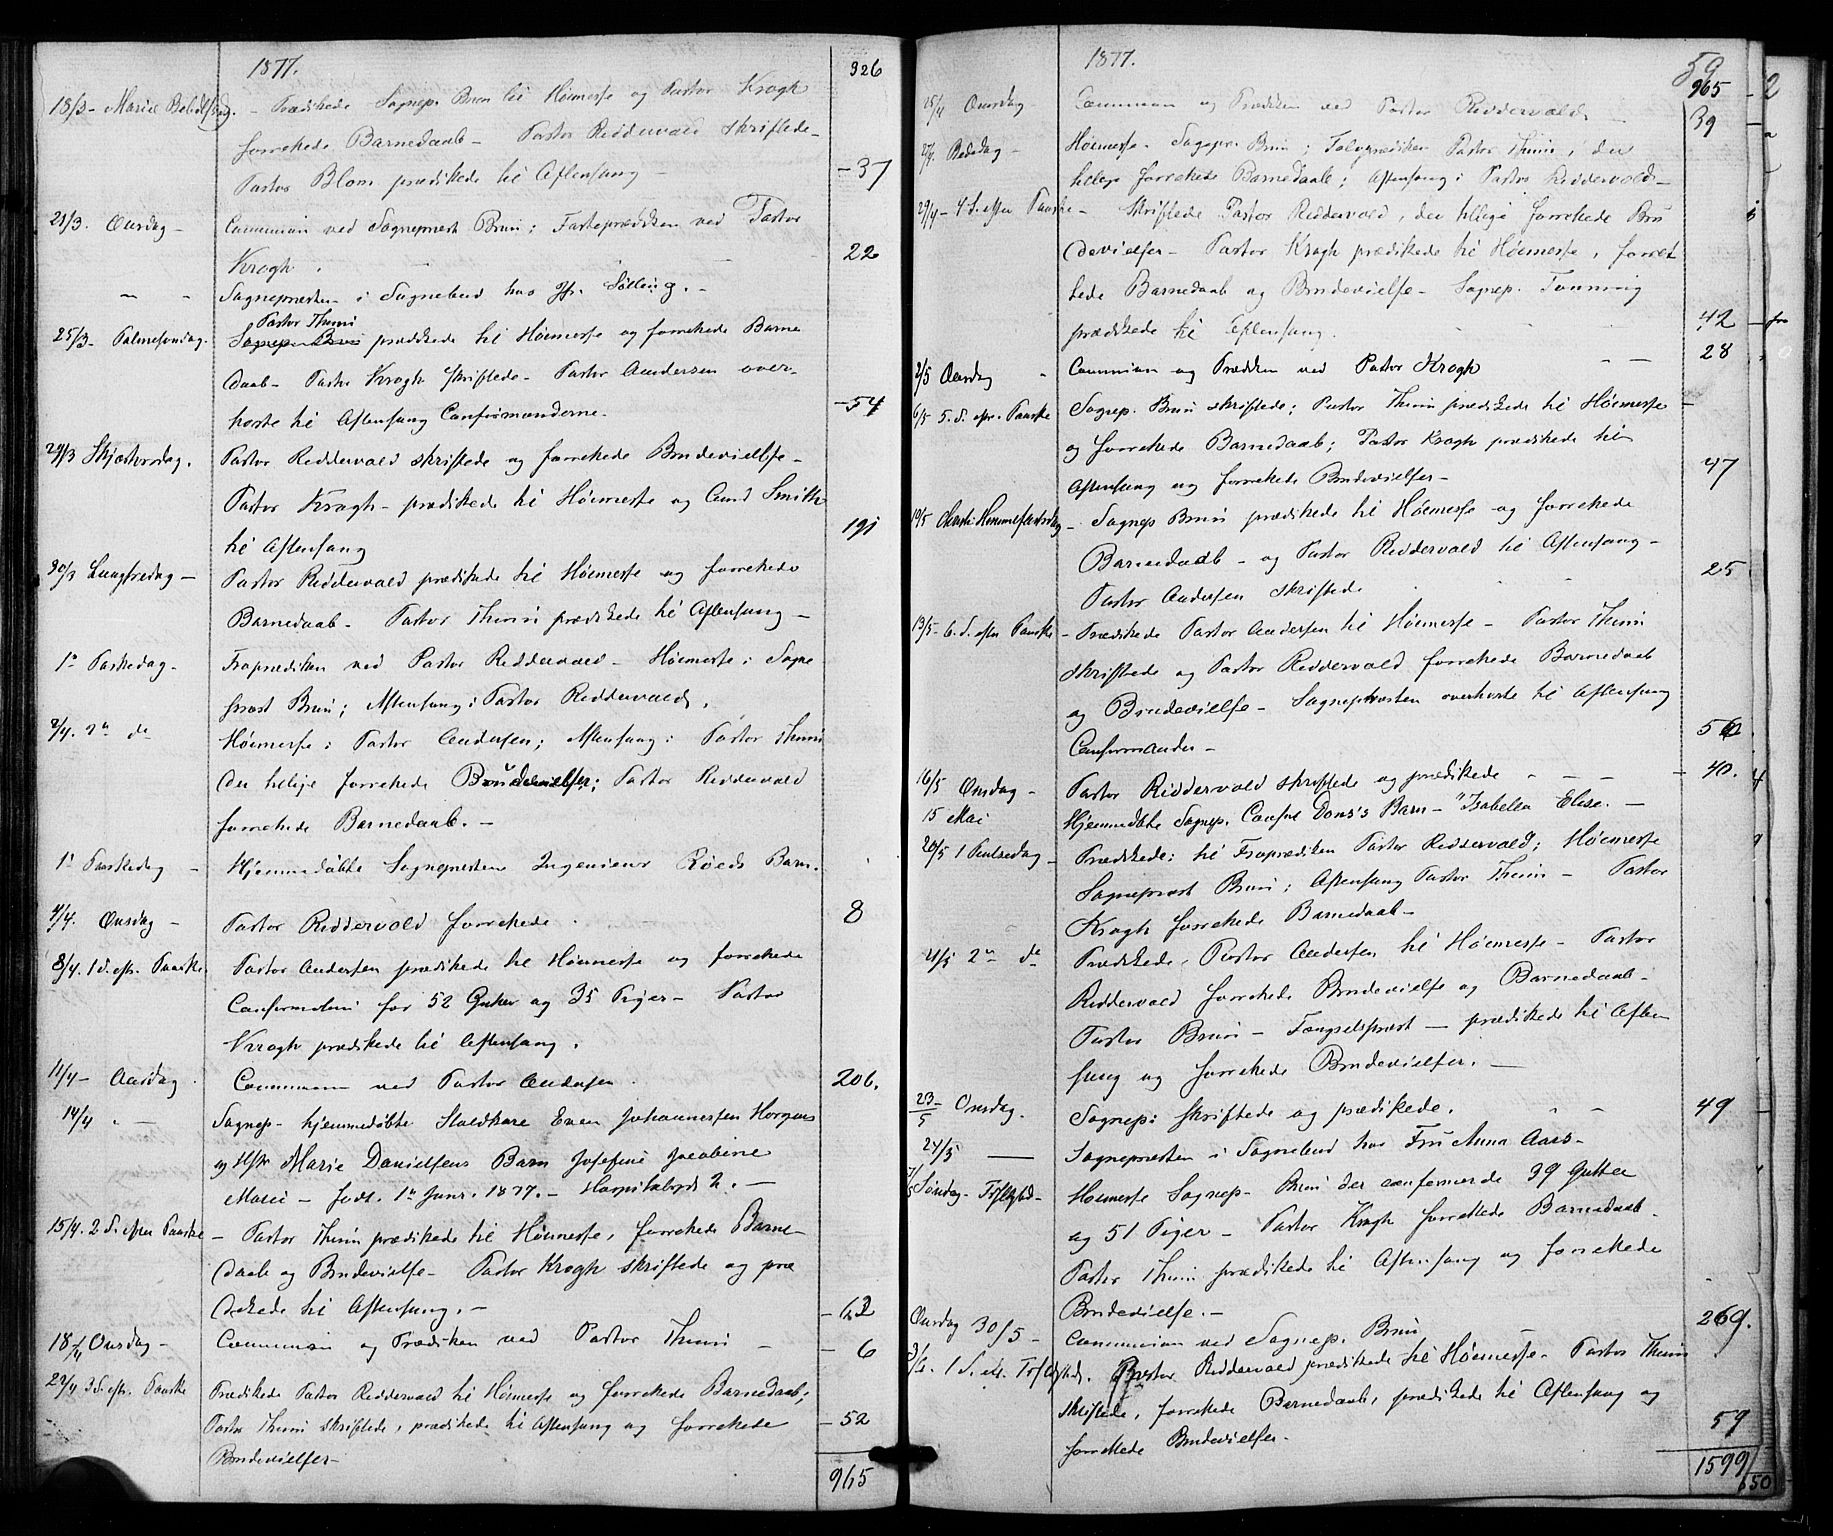 1877.
326
18/3 - Mariæ Bebud.dag. - Prædikede Sognep. Bruun til Høimesse og Pastor Krogh
forrettede Barnedaab - Pastor Riddervold skriftede -
Pastor Blom prædikede til Aftensang - 37
21/3. Onsdag - Communion ved Sognepræst Bruun; Fasteprædiken ved Pastor
Krogh. 22
" " Sognepræsten i Sognebud hos Jfr. Sølling. -
Pastor Thunn
25/3 - Palmesøndag. Sognep. Bruun prædikede til Høimesse og forrettede Barne
daab - Pastor Krogh skriftede - Pastor Andersen over-
hørte til Aftensang Confirmanderne. - 54
29/3 Skjærtorsdag. Pastor Riddervold skriftede og forrettede Brudevielse -
Pastor Krogh - prædikede til Høimesse og Cand Smith
til Aftensang 191
30/3 Langfredag - Pastor Riddervold prædikede til Høimesse og forrettede
Barnedaab - Pastor Thunn prædikede til Aftensang -
1ste Paaskedag - Froprædiken ved Pastor Riddervold - Høimesse: Sogne
præst Bruun; Aftensang: Pastor Riddervold.
2/4. 2den do Høimesse: Pastor Andersen; Aftensang: Pastor Thunn
der tillige forrettede Brudevielser; Pastor Riddervold
forrettede Barnedaab. -
1ste Paaskedag - Hjemmedøbte Sognepræsten Ingenieur Røeds Barn.
4/4. Onsdag - Pastor Riddervold forrettede. 8
8/4. 1 S. eft. Paaske Pastor Andersen prædikede til Høimesse og forrettede
Confirmation for 52 Gutter og 35 Piger - Pastor
Krogh prædikede til Aftensang.
11/4 - Onsdag. Communion ved Pastor Andersen. 206.
14/4 " - Sognep. hjemmedøbte Staldkarl Even Johannessen Horgens
og Hstr Marie Danielsens Barn Josefine Jacobine
Marie - født. 1ste Janr. 1877. - Hospitalsgd 2. -
15/4. 2 S. efter Paaske - Pastor Thunn prædikede til Høimesse, forrettede Barne-
daab og Brudevielse - Pastor Krogh skriftede og præ
dikede til Aftensang. - 62
18/4 Onsdag - Communion og Prædiken ved Pastor Thunn - 6
22/4 3 S. eft. Paaske Prædikede Pastor Riddervold til Høimesse og forrettede Barnedaab;
Pastor Thunn skriftede, prædikede til Aftensang og forrettede - 52
Brudevielser -
965
1877.
59
965
25/4 Onsdag Communion og Prædiken ved Pastor Riddervold. 39
27/4. Bededag - Høimesse - Sognepr. Bruun; Tolvprædiken Pastor Thunn, der
tillige forrettede Barnedaab; Aftensang: Pastor Riddervold -
29/4 - 4 S. efter Paaske - Skriftede Pastor Riddervold, der tillige forrettede Bru
devielser - Pastor Krogh prædikede til Høimesse, forret
tede Barnedaab og Brudevielse - Sognep. Tønning
prædikede til Aftensang. 42
2/5 Onsdag Communion og Prædiken ved Pastor Krogh 28
6/5 5. S. eftr. Paaske Sognep. Bruun skriftede; Pastor Thunn prædikede til Høimesse -
og forrettede Barnedaab; Pastor Krogh prædikede til
Aftensang og forrettede Brudevielser - 47
10/5 Christi Himmelfartsdag - Sognep Bruun prædikede til Høimesse og forrettede
Barnedaab - og Pastor Riddervold til Aftensang -
Pastor Andersen skriftede 25
13/5 - 6. S. efter Paaske - Prædikede Pastor Andersen til Høimesse - Pastor Thunn
skriftede og Pastor Riddervold forrettede Barnedaab
og Brudevielse - Sognepræsten overhørte til Aftensang
Confirmander -
16/5 Onsdag - Pastor Riddervold skriftede og prædikede - 40.
15 Mai Hjemmedøbte Sognep. Consul Dons's Barn - "Isabella Elise. -
20/5 1 Pintsedag - Prædikede: til Froprædiken Pastor Riddervold; Høimesse
Sognepræst Bruun; Aftensang Pastor Thunn - Pastor
Krogh forrettede Barnedaab -
21/5 2den do Prædikede, Pastor Andersen til Høimesse - Pastor
Riddervold forrettede Brudevielse og Barnedaab -
Pastor Bruun - Fængselspræst - prædikede til Aften
sang og forrettede Brudevielser. -
23/5 Onsdag. Sognep: skriftede og prædikede. 49
24/5 - Sognepræsten i Sognebud hos Fru Anna Aars -
Søndag - Trefoldighed - Høimesse Sognep - Bruun der confirmerede 39 Gutter
og 51 Piger - Pastor Krogh forrettede Barnedaab -
Pastor Thunn prædikede til Aftensang og forrettede
Brudevielse. - 269.
Onsdag 30/5 - Communion ved Sognep. Bruun
3/6. 1 S. eft. Trefoldighed. Pastor Riddervold prædikede til Høimesse - Pastor Thunn
skriftede, forrettede Barnedaab, prædikede til Aftensang og
forrettede Brudevielser. 59
1599